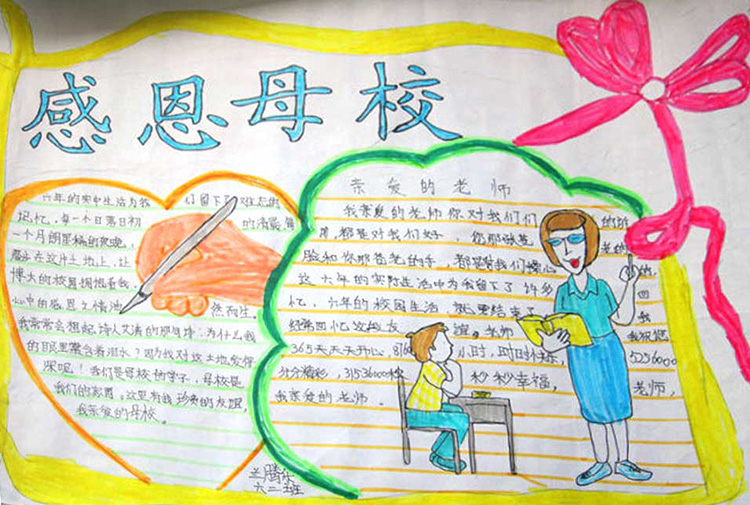 感恩母校
六年的实中生活为我们留下了难忘的
记忆，每一个日落日初的清晨
一个月朗星稀的夜晚，
踏步在这片土地上，让
博大的校园拥抱着我，
心中的感恩之情 然而生，
我常常会想起诗人艾清的那 诗：为什么我
的眼里常含着泪水？因为我对这土地爱得
深呢！我们是母校的学子，母校是
我们的家园。这里有我珍贵的友谊，
我亲爱的母校。
亲爱的老师
我亲爱的老师你对我们 的
都是对我们好。您那张
脸和你那 老的手，都是 我们操心
这六年的实际生活中为我留下了许多
忆，六年的校园生活，就要结束了 回
经常回忆这段友谊。老师 我祝您
365天天天开心，8760小时，时时快乐，5256000
分分精彩，31536000秒 秒秒幸福， 老师，
我亲爱的老师。
兰腾乐
六二班